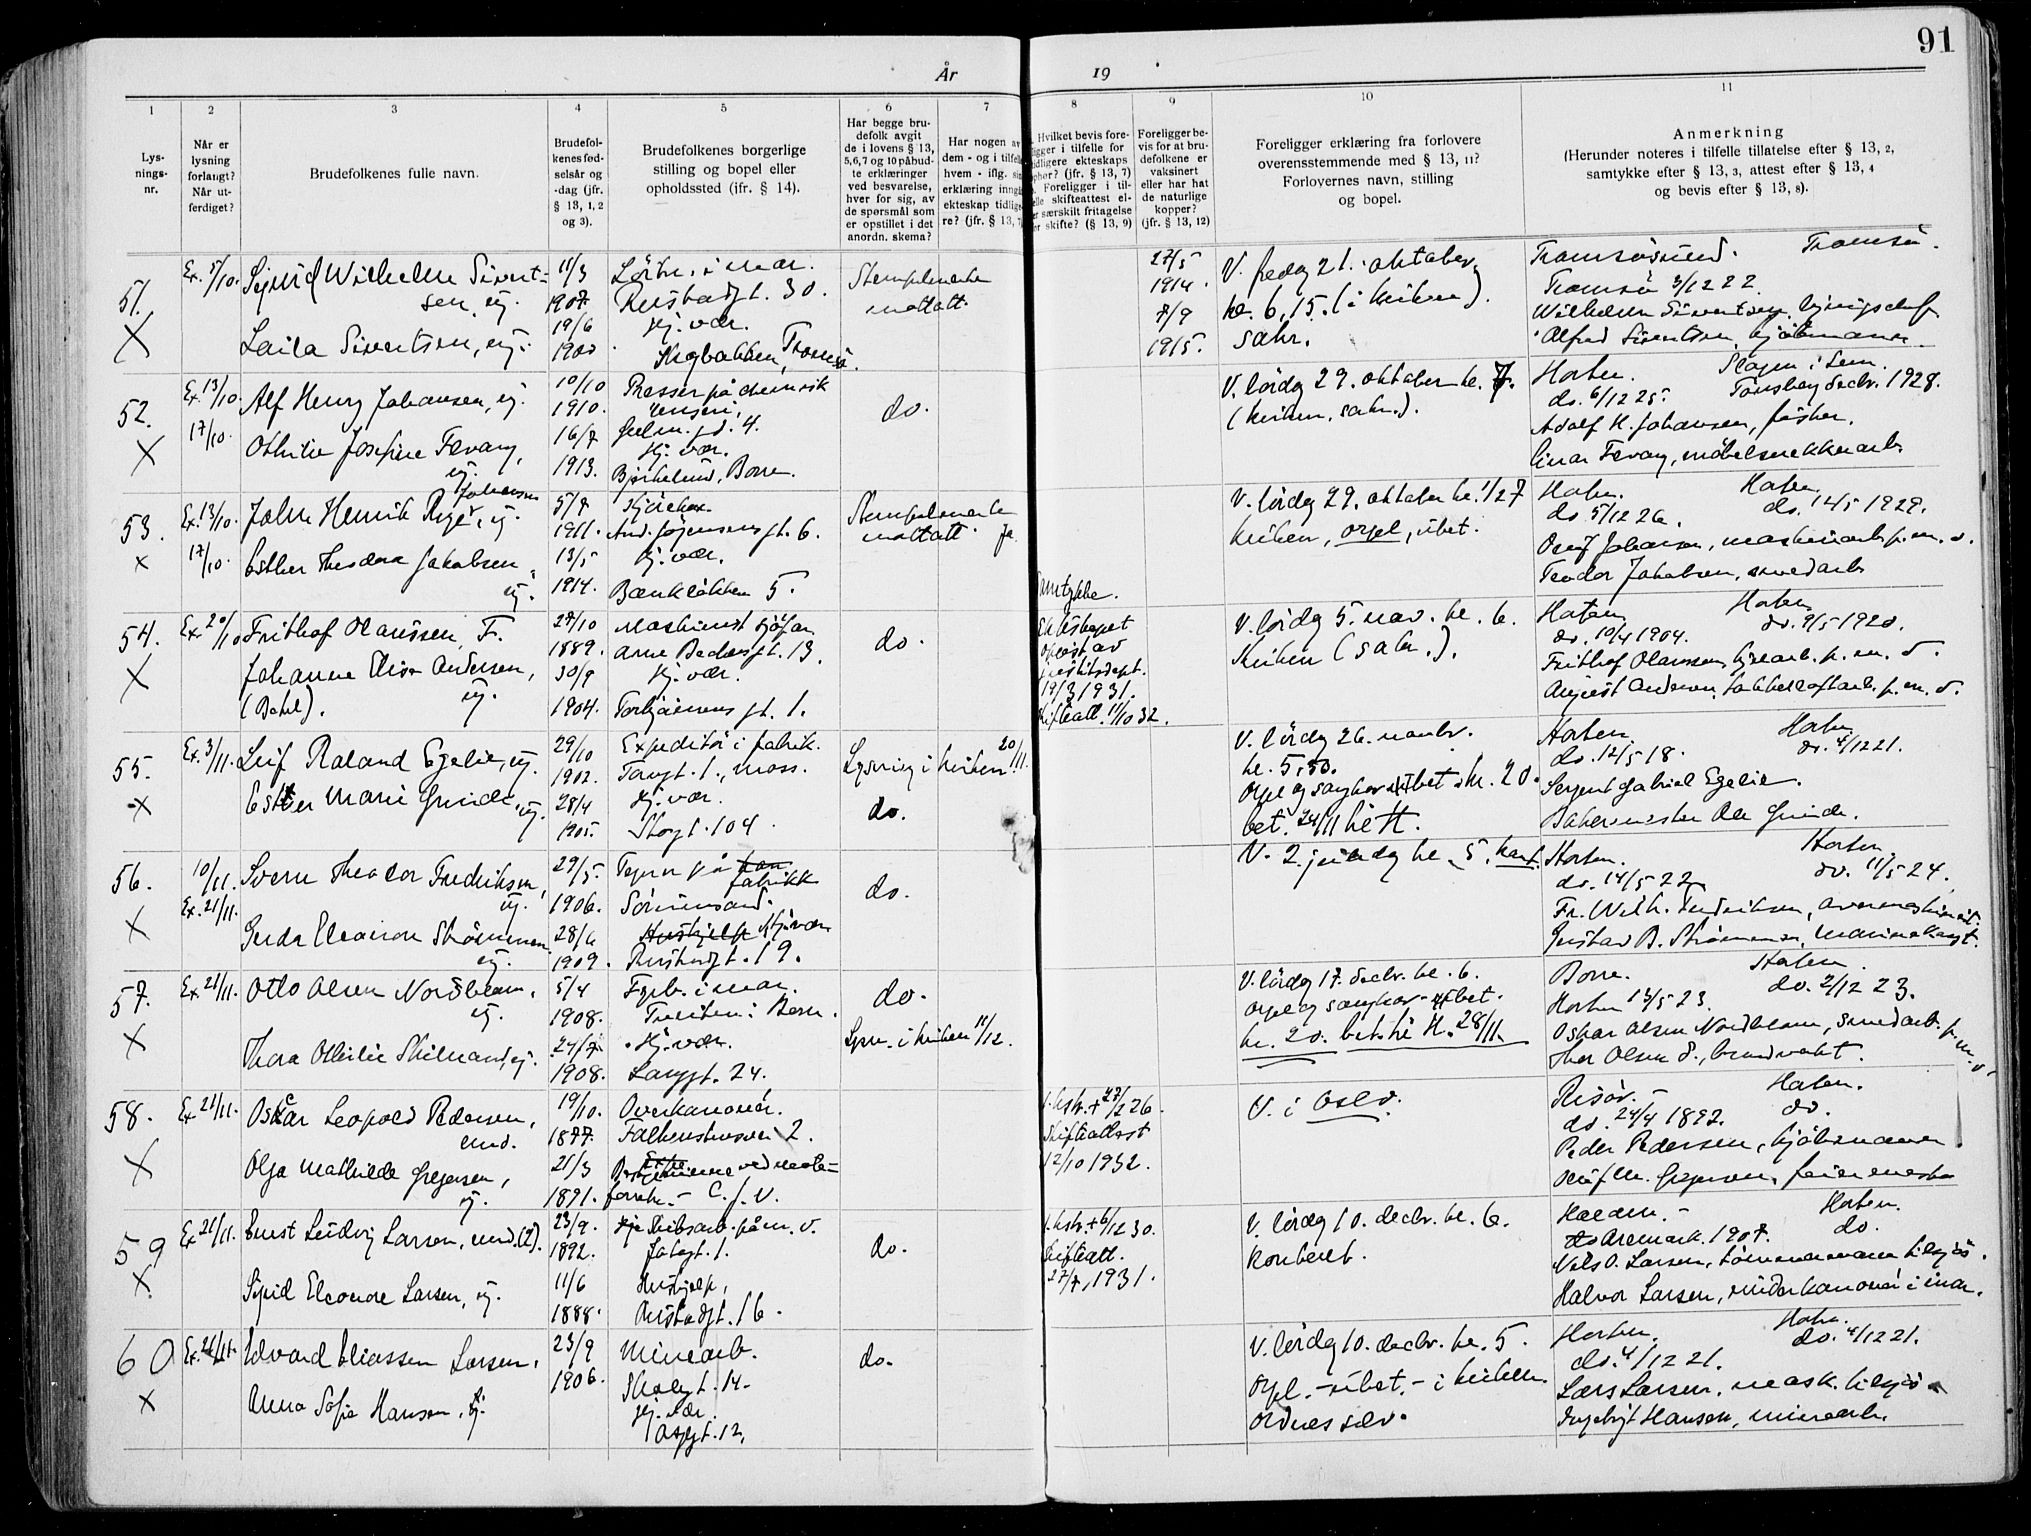 91
År 19
1 2 3 4 5 6 7 8 9 10 11
Lys-
nings-
nr.
Når er
lysning
forlangt?
Når ut-
ferdiget?
Brudefolkenes fulle navn.
Brudefol-
kenes fød-
selsår og
-dag (jfr.
§ 13, 1, 2
og 3).
Brudefolkenes borgerlige
stilling og bopel eller
opholdssted (jfr. § 14).
Har begge bru-
defolk avgit
de i lovens § 13,
5,6,7 og 10 påbud-
te erklæringer
ved besvarelse,
hver for sig, av
de spørsmål som
er opstillet i det
anordn. skema?
Har nogen av
dem - og i tilfelle
hvem - iflg. sin
erklæring inngått
ekteskap tidlige-
re? (jfr. § 13, 7)
Hvilket bevis fore-
ligger i tilfelle for
tidligere ekteskaps
ophør? (jfr. § 13, 7)
Foreligger i til-
felle skifteattest el-
er særskilt fritagelse
er skifte? (§ 13, 9)
Foreligger be-
vis for at bru-
defolkene er
vaksinert
eller har hat
de naturlige
kopper?
(jfr. § 13, 12)
Foreligger erklæring fra forlovere
overensstemmende med § 13, 11?
Forlovernes navn, stilling
og bopel.
Anmerkning
(Herunder noteres i tilfelle tillatelse efter § 13, 2,
samtykke efter § 13, 3, attest efter § 13, 4
og bevis efter § 13, 8).
51.
X
Ex. 5/10.
Sigurd Wilhelm Sivert-
sen, ug.
Laila Sivertsen, ug.
11/3
1907
19/6
1900
Löitn. i mar.
Rustadgt. 30.
Hj. vær.
Skogbakken, Tromsö.
Stempelmerke
mottatt
27/5
1914.
7/9
1915.
V. fredag 21. oktober
kl. 6,15. (i kirken).
sakr.
Tromsösund. Tromsö.
Tromsö 3/12 22
Wilhelm Sivertsen,
Alfred Sivertsen, kjöbmann.
52.
X
Ex. 13/10.
17/10.
Alf Henry Johansen, ug.
Othilie Josefine Tevang,
ug.
10/10
1910.
16/7
1913.
Presser på chemisk
renseri,
gt. 4.
Hj. vær.
Bjerkelund, Borre.
do.
V. lördag 29. oktober kl. 7.
(kirken. sakr.).
Horten. Slagen i Sem.
do. 6/12 25. Tönsberg decbr. 1928.
Adolf H. Johansen, fisker.
Einar Tevang, möbelsnekkerarb.
53.
x
Ex. 13/10.
17/10.
Johansen
John Henrik Ryer, ug.
Esther Theodora Jakobsen,
ug.
5/7
1911.
13/5
1914.
And. Jörgensens gt. 6.
Hj. vær.
Bankløkken 5.
Stempelmerke
mottatt. Ja
V. lördag 29. oktober kl. 1/2 7
kirken, orgel, ubet.
Horten. Horten,
do 5/12 26. do. 12/5 1929.
Oluf Johansen, maskinarb. p. m. v.
Teodor Jakobsen, smedarb.
54.
X
Ex 20/10
Frithof Olaussen, F.
Johanne Elise Andersen,
(Dahl). ug.
27/10
1889.
30/9
1904.
Maskinist sjöfar.
Arne Backers gt. 13.
Hj. vær.
gt. 1.
do.
Samtykke.
Ekteskapet
opløst av
justitsdept.
19/3 1931.
skifteatt. 11/10 32.
V. lördag 5. nov. kl. 6.
Kirken (sakr.).
Horten, Horten
do. 10/4 1904. do. 9/5 1920.
Frithof Olaussen, p. m. v.
August Andersen, p. m. v.
55.
X
Ex. 3/11.
Leif Roland Egelie, ug.
Esther Marie Grinde, ug.
29/10
1902.
28/4
1905.
Expeditör i fabrik.
Torvgt. 1., Moss.
Hj. vær.
Storgt. 104.
Lysning i kirken 20/11.
do.
V. lördag 26. novbr.
kl. 5,30.
Orgel og sangkor ubet kr. 20.
bet. 24/11 kl H.
Horten, Horten
do. 12/5 18. do. 4/12 21.
Sergent Gabriel Egelie.
Bakermester Ole Grinde.
56.
X
10/11.
Ex. 21/11.
Sverre Theodor Fredriksen,
ug.
Gerda Eleonora Strömmen
ug.
29/5.
1906.
28/6
1909.
på
fabrikk
Hushjelp Hj. vær
Rustadgt. 19.
do.
V. 2. juledag kl. 5.
Horten. Horten.
do. 14/5 22. do. 11/5 24.
Fr. Wilh. Fredriksen,
Gustav B. Strömmen,
57.
X
Ex 21/11.
Otto Olsen Nordblom,
ug.
Thora Othilie Skilmand, ug.
5/4
1908.
24/7
1908.
Fyrb. i mar.
i Borre.
Hj. vær.
Langgt. 24.
do.
Lysn. i kirken 11/12.
V. lördag 17. decbr. kl. 6.
Orgel og sangkor ubet.
kr. 20. bet. kl H. 28/11.
Borre. Horten.
Horten 13/5 23. do. 2/12 23.
Oskar Olsen Nordblom, smedarb. p. m. v.
Thor Olsen S., brandvakt.
58.
X
Ex 21/11.
Oskar Leopold Pedersen,
enkm.
Olga Mathilde Gregersen,
ug.
19/10.
1877.
21/3
1891.
Overkanonér.
Falkenstensvei 2.
ved mote-
forretn. - C. J. V.
1. hstr. + 27/2 26.
Skifteattest
12/10 1932.
V. i Oslo.
Risör. - Horten.
do. 24/4 1892. do.
Peder Pedersen, kjöbmann
Oluf M. Gregersen, feiermester
59
X
Ex 21/11.
Ernst Ludvig Larsen, enkm. (2).
Sigrid Eleonore Larsen, ug.
23/9.
1892.
11/6
1888.
på m. v.
gt. 1.
Hushjelp,
Rustadgt. 16.
do.
1. hstr. + 6/12 30.
Skifteatt.
27/7, 1931.
V. lördag 10. decbr. kl. 6.
Kontoret.
Halden. - Horten.
do Aremark. 1907. do.
Nils O. Larsen, tömmermann tilsjös.
Halvor Larsen, underkanonér i mar.
60
x
Ex. 21/11.
Edvard Eliassen Larsen,
Anna Sofie Hansen, ug.
23/9
1906.
Minearb.
Skolegt. 14.
Hj. vær.
gt. 12.
do.
V. lördag 10. decbr. kl. 5.
Orgel. - ubet. - i kirken.
ordnes selv.
Horten. Horten.
do. 4/12 21. do. 4/12 21.
Lars Larsen, mask. tilsjös
Ingebrigt Hansen, minearb.